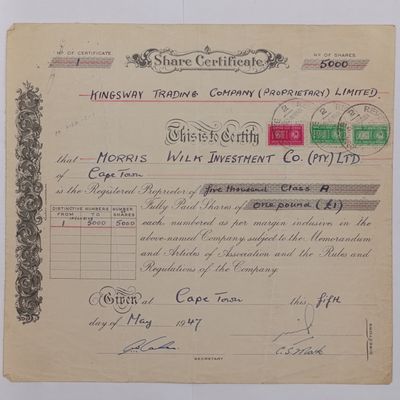 Nº OF CERTIFICATE
1
Share Certificate
Nº OF SHARES
5000
KINGSWAY TRADING COMPANY (PROPRIETARY) LIMITED.
This is to Certify
that MORRIS WILK INVESTMENT Co. (PTY) LTD
of Cape Town
is the Registered Proprietor of five thousand Class A
Fully Paid Shares of one pound (£1)
each numbered as per margin inclusive in the
above-named Company, subject to the Memorandum
and Articles of Association and the Rules and
Regulations of the Company.
DISTINCTIVE NUMBERS
FROM INCLUSIVE TO
NUMBER OF SHARES
1 5000 5000
Given at Cape Town this fifth
day of May 1947
SECRETARY
DIRECTORS